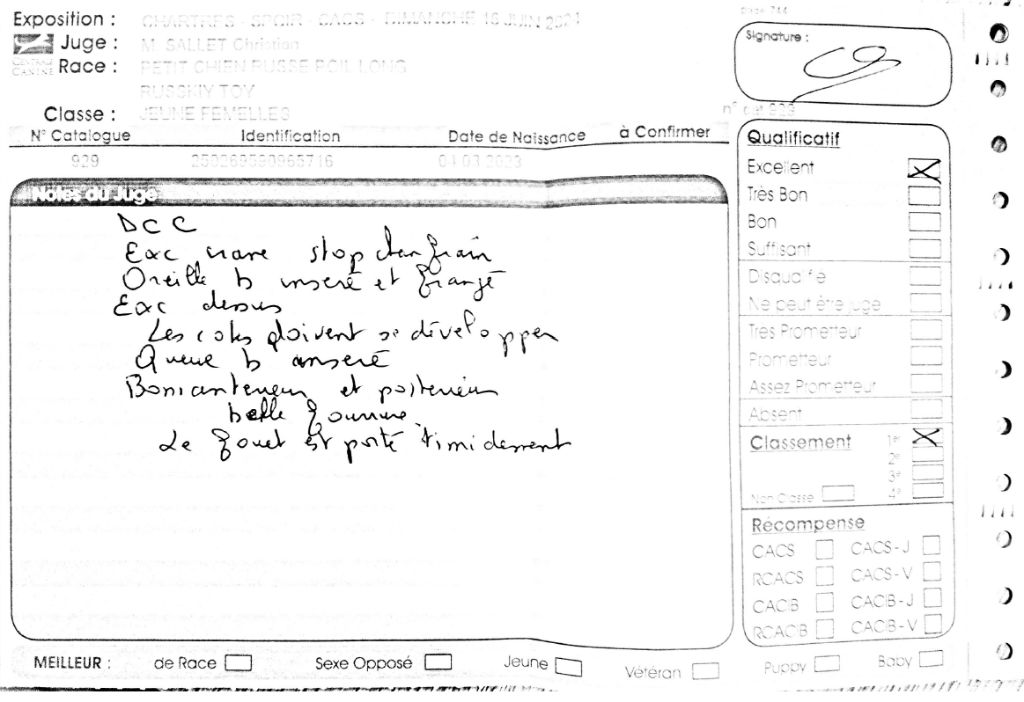 Exposition : CHARTRES - SPCIR - CACS - DIMANCHE 16 JUIN 2024
Juge : M. SALLET Christian
CENTRALE CANINE
Race : PETIT CHIEN RUSSE POIL LONG
RUSSKIY TOY
Classe : JEUNE FEMELLES
Signature :
N° Catalogue Identification Date de Naissance à Confirmer
929 250269590965716 04 03 2023
Notes du Juge
DCC
Exc crane stop chanfrain
Oreille b inseré et frangé
Exc dessus
Les cotes doivent se développer
Queue b inseré
Bons anterieur et posterieur
belle fourrure
Le fouet est porté timidement
Qualificatif
Excellent
Très Bon
Bon
Suffisant
Disqualifié
Ne peut être jugé
Tres Prometteur
Prometteur
Assez Prometteur
Absent
Classement 1er
2e
3e
Non Classé 4e
Récompense
CACS CACS-J
RCACS CACS-V
CACIB CACIB-J
RCACIB CACIB-V
MEILLEUR : de Race Sexe Opposé Jeune Vétéran Puppy Baby